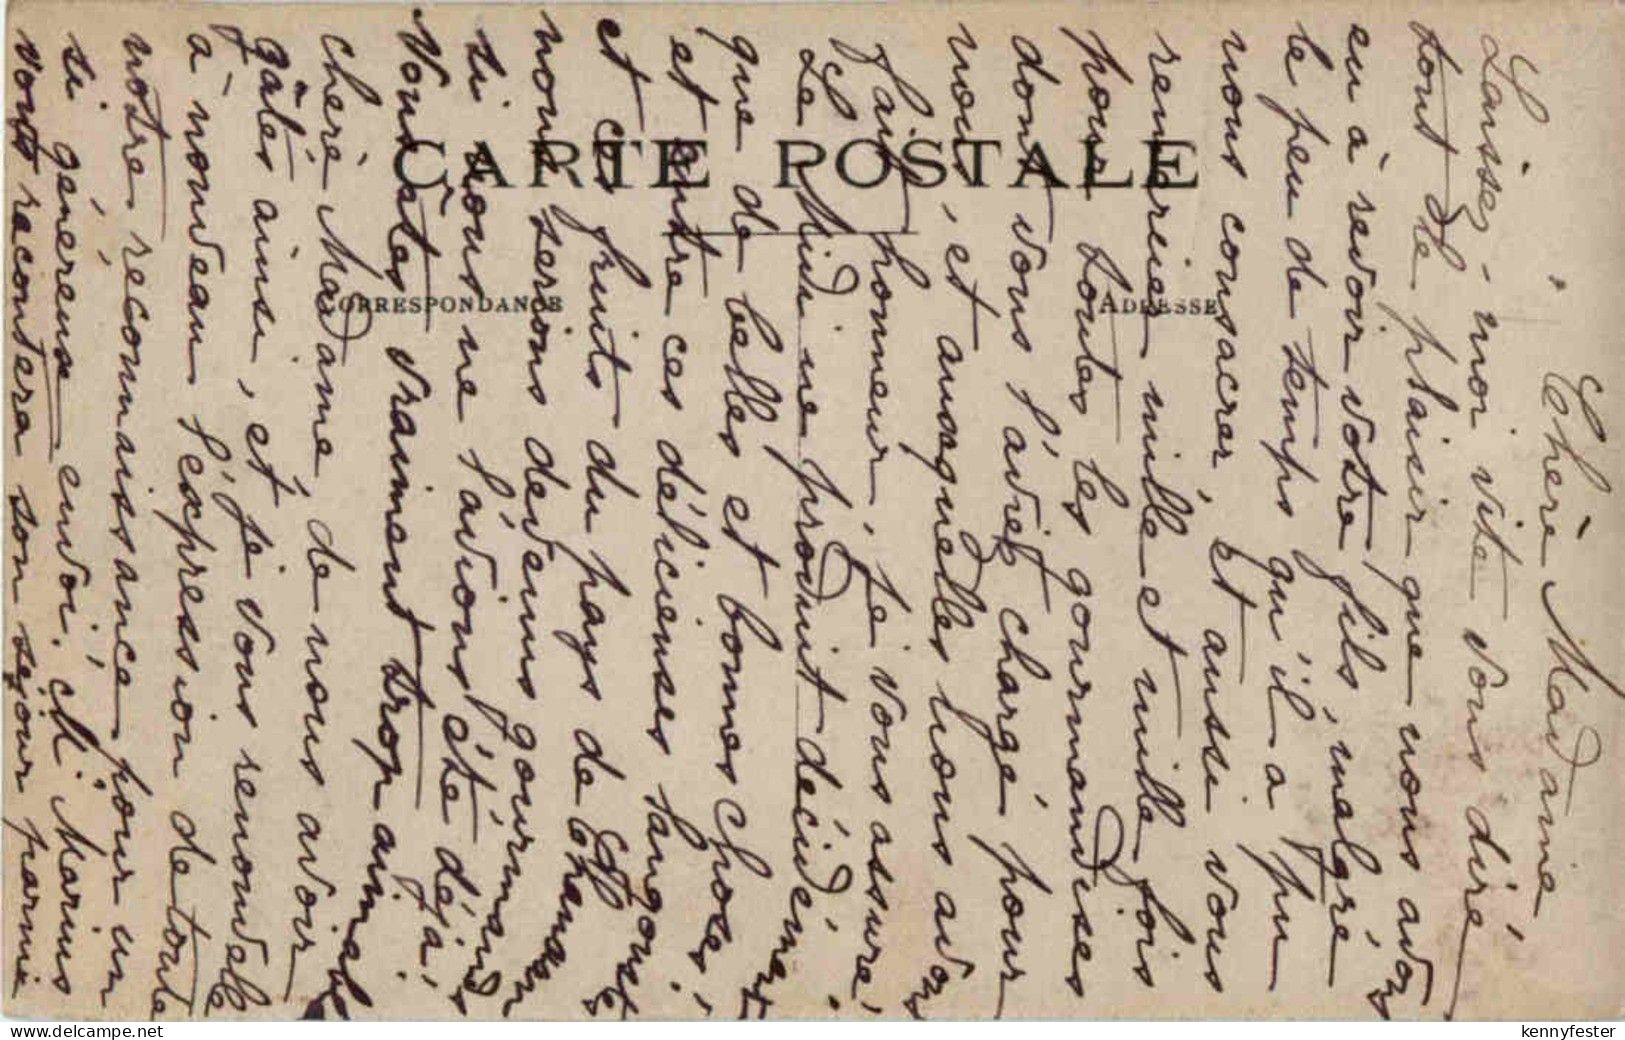 Chère Madame
Laissez-moi vite vous dire
tout de plaisir que nous avons
eu à revoir votre fils, malgré
le peu de temps qu'il a pu
nous consacrer, et aussi vous
remercier mille et mille fois
pour toutes les gourmandises
dont vous l'aviez chargé pour
nous, et auxquelles nous avons
fait honneur, je vous assure!
Le Midi ne produit décidément
que de belles et bonnes choses!
et entre ces délicieuses langoustes
et ces fruits du pays de
nous serions devenus gourmands
si nous ne l'avions été déjà!
Vous êtes vraiment trop aimable
chère Madame, de nous avoir
gâtés ainsi, et je vous renouvelle
à nouveau l'expression de toute
notre reconnaissance pour un
si généreux envoi. M. Marius
vous racontera son séjour parmi
CARTE POSTALE
CORRESPONDANCE
ADRESSE
kennyfester